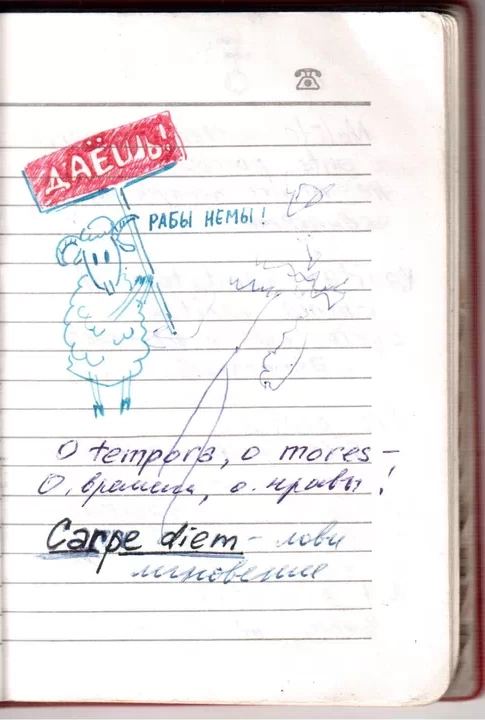 ДАЁШЬ!
РАБЫ НЕМЫ!
O tempora, o mores –
О, времена, о нравы!
Carpe diem – лови
мгновение